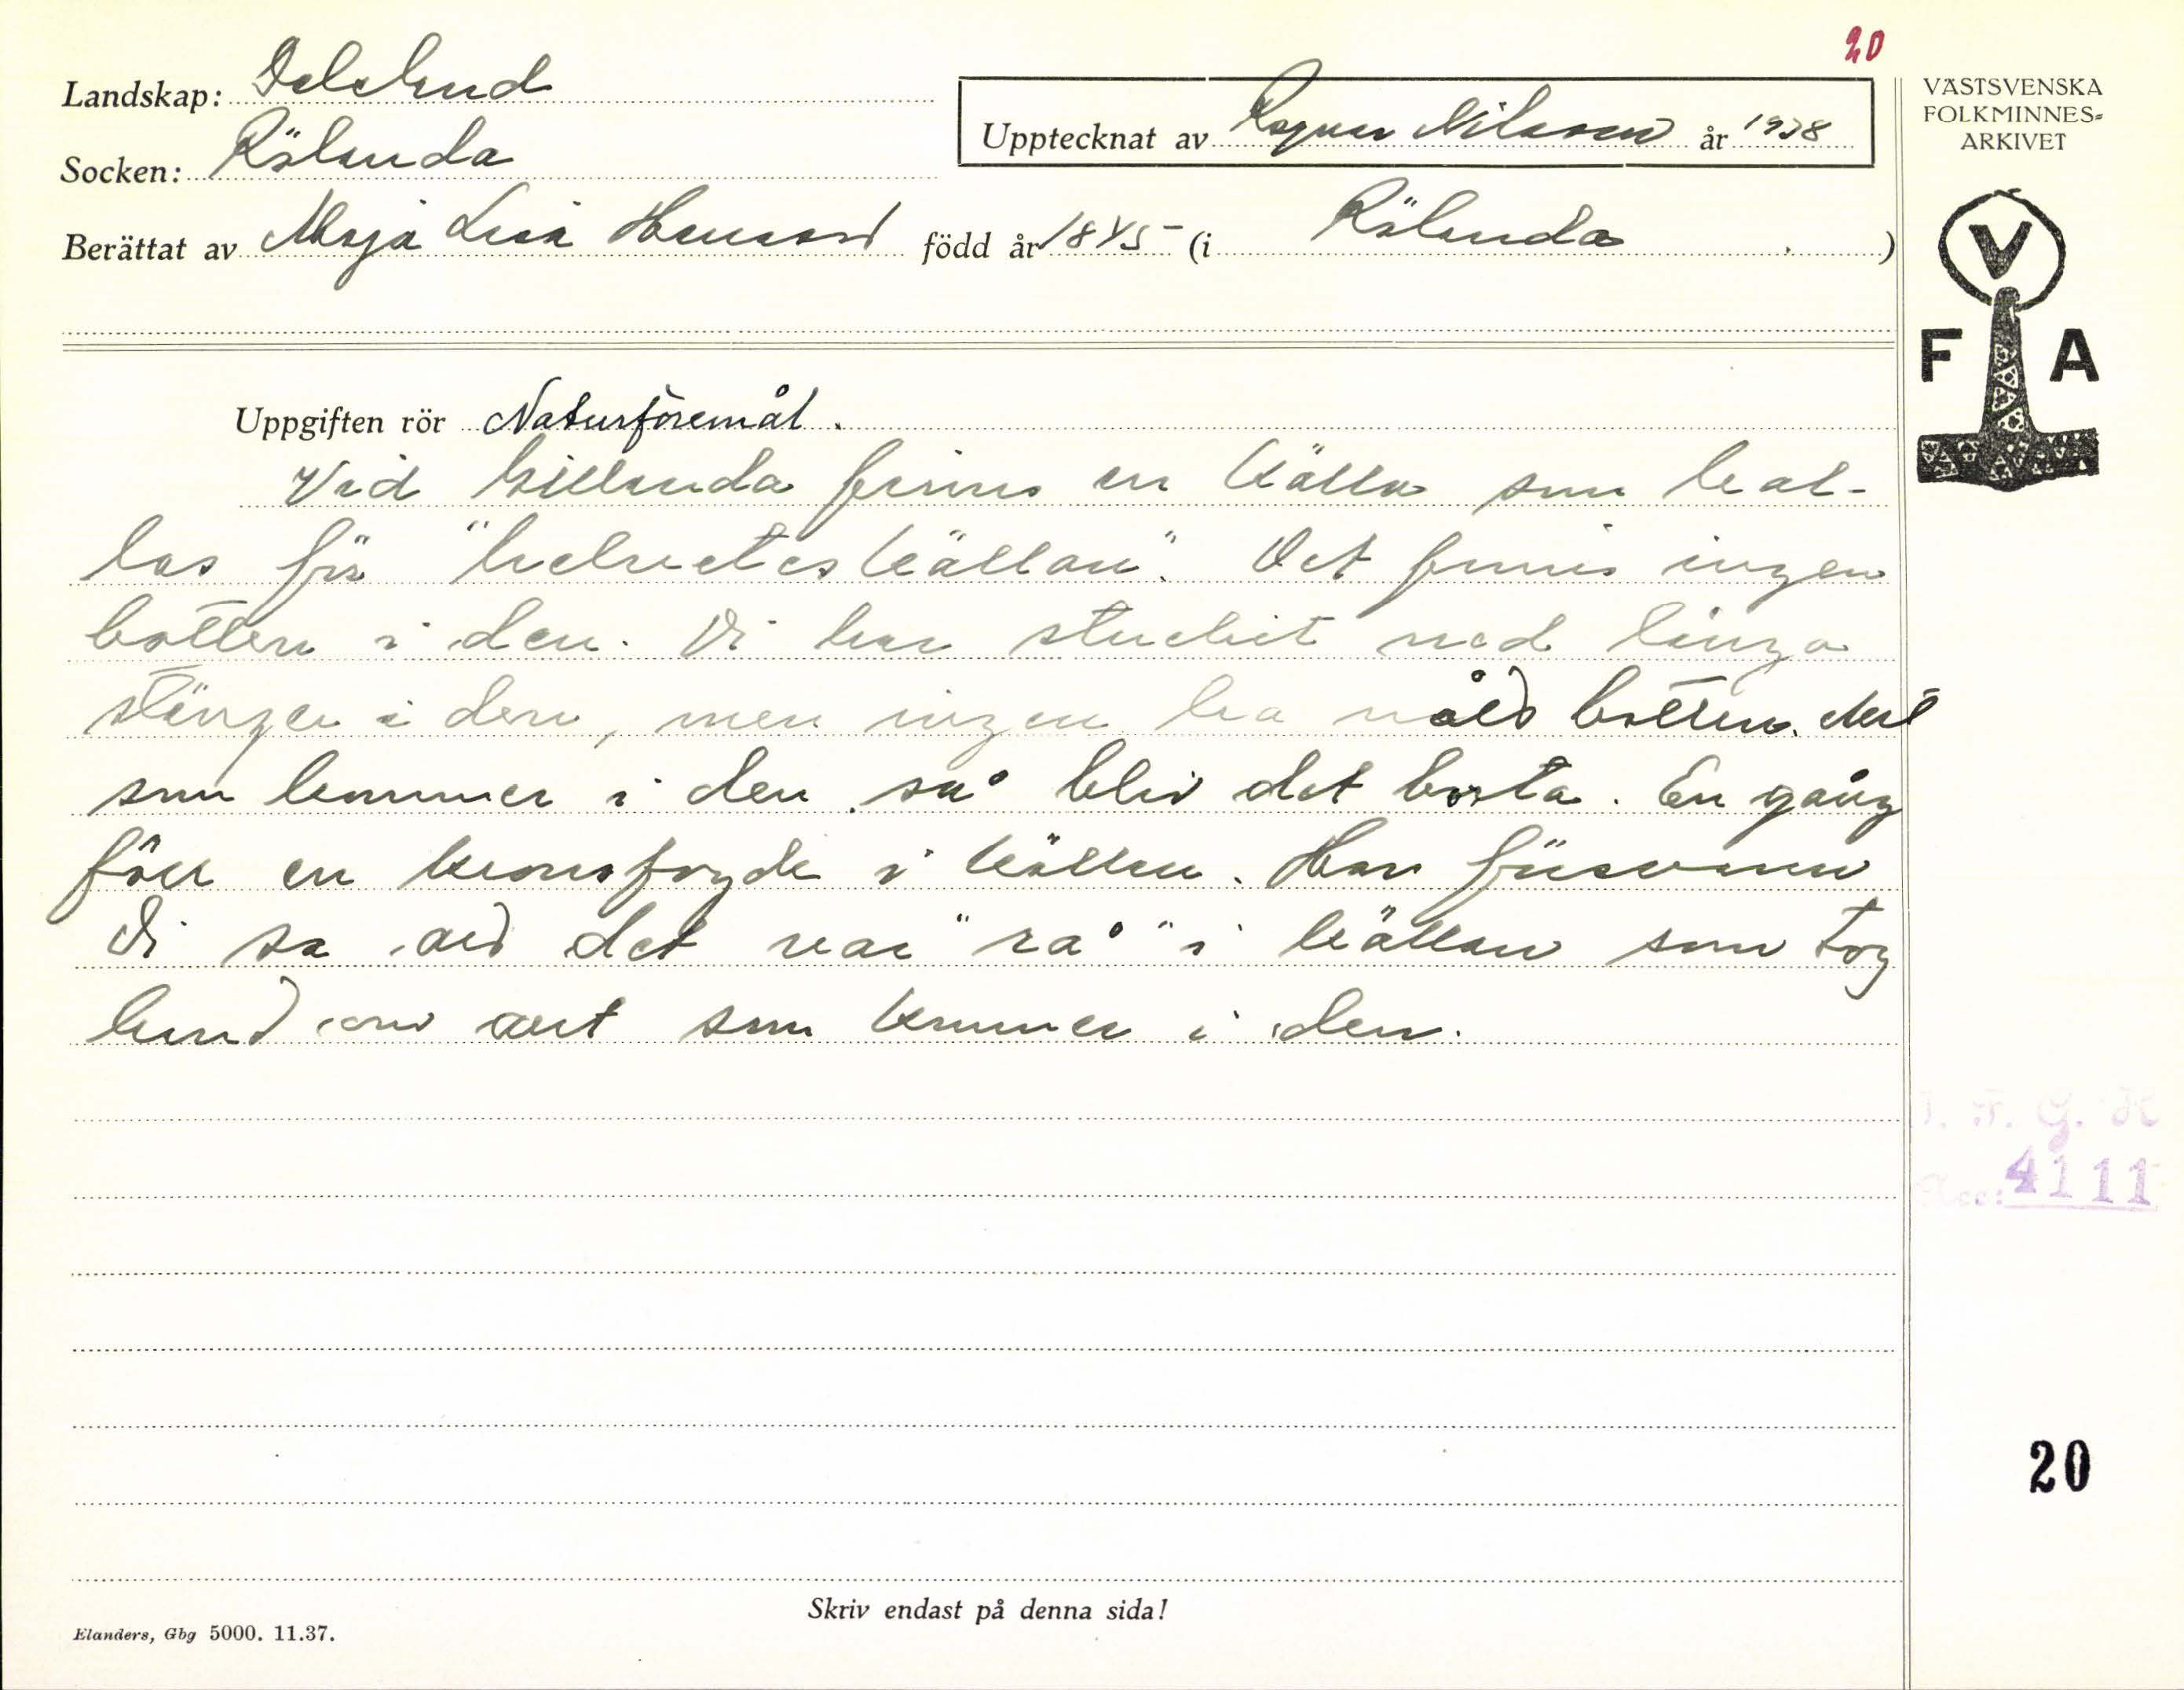 20
Landskap: Dalsland
Socken: Rölanda
Upptecknat av Ragnar Nilsson år 1938
Berättat av Maja Lisa Hansson född år 1845 (i Rölanda)
VÄSTSVENSKA
FOLKMINNES=
ARKIVET
V
F A
Uppgiften rör Naturföremål.
Vid finns en källa som kal-
las för "helveteskällan". Det finnis ingen
botten i den. Di har stuckit ned långa
stänger i den, men ingen ha nåed botten. Allt
som kommer i den så bliv det borta. En gång
föll en kronofogde i källan. Han försvann
Di sa aed det var "rå" i källan som tog
hand om aut som kommer i den.
I. F. G. H
Acc: 4111
20
Skriv endast på denna sida!
Elanders, Gbg 5000. 11.37.